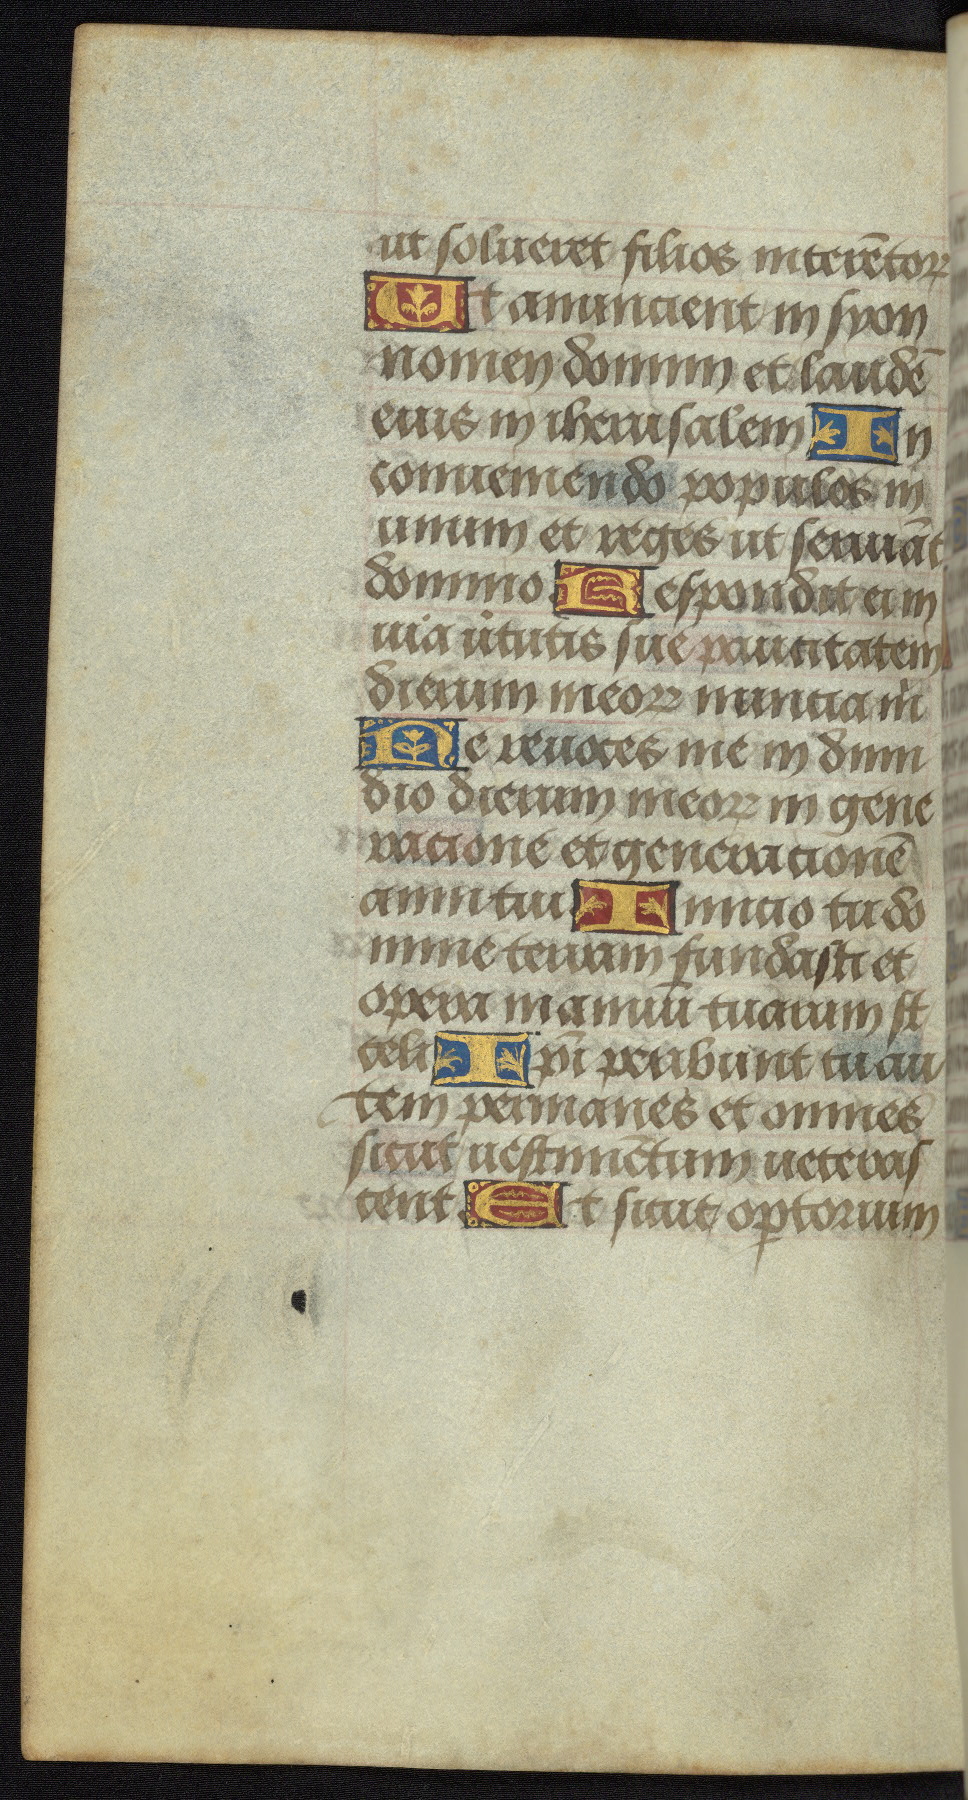 ut solueret filios interētoꝝ
Ut anuncient in syon
nomen domini et laudē
eius in iherusalem In
conueniendo populos in
unum et reges ut seruiāt
domino Respondit ei in
uia ūtutis sue paucitatem
dierum meoꝝ nuncia m̄
Ne reuoces me in dimi
dio dierum meoꝝ in gene
racione et generacionē
anni tui Inicio tu do
mine terram fundasti et
opera manuū tuarum st̄
celi Ip̄i peribunt tu au
tem permanes et omnes
sicut uestimētum veteras
cent Et sicut optorium